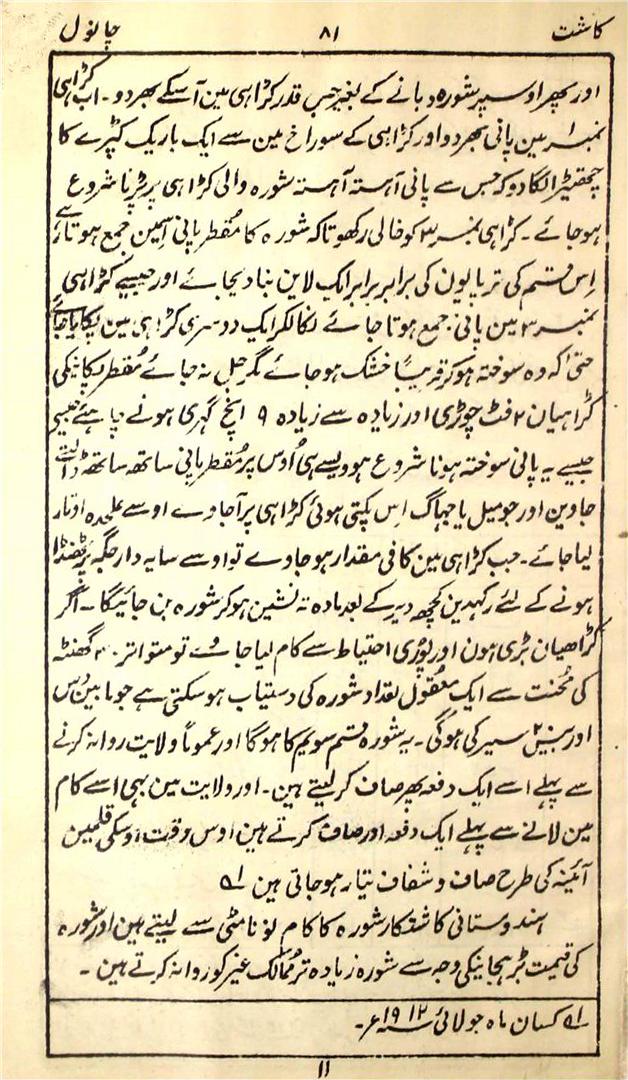 کاشت ۸۱ چانول
اور پھر اوسپر شورہ دبانے کے بغیر جس قدر کڑاہی مین آسکے بھر دو۔ اب کڑاہی
نمبر ۱ مین پانی بھر دو اور کڑاہی کے سوراخ مین سے ایک باریک کپڑے کا
چھیتھڑا لگا دو کہ جس سے پانی آہستہ آہستہ شورہ والی کڑاہی پر پڑنا شروع
ہو جائے۔ کڑاہی نمبر ۳ کو خالی رکھو تاکہ شورہ کا مُقطر پانی اسمین جمع ہوتا رہے
اِس قسم کی ترپایون کی برابر برابر ایک لاین بنا دیجائے اور جیسے کڑاہی
نمبر ۳ مین پانی جمع ہوتا جائے نکالکر ایک دوسری کڑاہی مین پکایا جائے
حتیٰ کہ وہ سوختہ ہو کر قریباً خشک ہو جائے مگر جل نہ جائے مُقطر پکانیکی
کڑاہیان ۲ فٹ چوڑی اور زیادہ سے زیادہ ۹ انچ گہری ہونے چاہئے جیسے
جیسے یہ پانی سوختہ ہونا شروع ہو ویسے ہی اُوس پر مُقطر پانی ساتھ ساتھ ڈالتے
جاوین اور جو میل یا جہاگ اِس پکتی ہوئی کڑاہی پر آجاوے اوسے علحدہ اوتار
لیا جائے۔ جب کڑاہی مین کافی مقدار ہو جاوے تو اوسے سایہ دار جگہ پر ٹھنڈا
ہونے کے لئے رکھدین کچھ دیر کے بعد مادہ تہ نشین ہو کر شورہ بن جائیگا۔ اگر
کڑاھیان بڑی ہون اور پُوری احتیاط سے کام لیا جاوے تو متواتر ۲۰ گھنٹہ
کی مُحنت سے ایک معقول تعداد شورہ کی دستیاب ہو سکتی ہے جو مابین دس
اور بیس ۲۰ سیر کی ہوگی۔ یہ شورہ قسم سویم کا ہوگا اور عموماً ولایت روانہ کرنے
سے پہلے اسے ایک دفعہ پھر صاف کر لیتے ہین۔ اور ولایت مین بھی اسے کام
مین لانے سے پہلے ایک دفعہ اور صاف کرتے ہین اوس وقت اوسکی قلمین
آئینہ کی طرح صاف و شفاف تیار ہو جاتی ہین ۱ھ
ہندوستانی کاشتکار شورہ کا کام لونا مٹی سے لیتے ہین اور شورہ
کی قیمت بڑہجانیکی وجہ سے شورہ زیادہ تر مُمالک غیر کو روانہ کرتے ہین۔
۱ھ کسان ماہ جولائی ۱۹۱۲ء۔
11